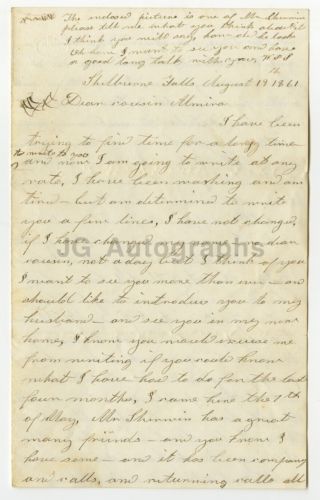 The inclosed picture is one of Mr Shinnin
please tell me what you think about it
I think you will say how old he looks
Oh dear I want to see you and have
a good long talk with you
Shelburne Falls August 19 1861
Dear cousin Almira
I have been
trying to find time for a long time
to write to you
and now I am going to write at any
rate, I have been washing and am
tired - but am determined to write
you a few lines, I have not changed
if I have changed dear
cousin, not a day but I think of you
I want to see you more than ever - and
should like to introduce you to my
husband - and see you in my new
home, I know you would excuse me
from writing if you could know
what I have had to do for the last
four months, I came here the 7th
of May, Mr Shinnin has a great
many friends - and you know I
have some - and it has been company
and calls, and returning calls all
JG Autographs